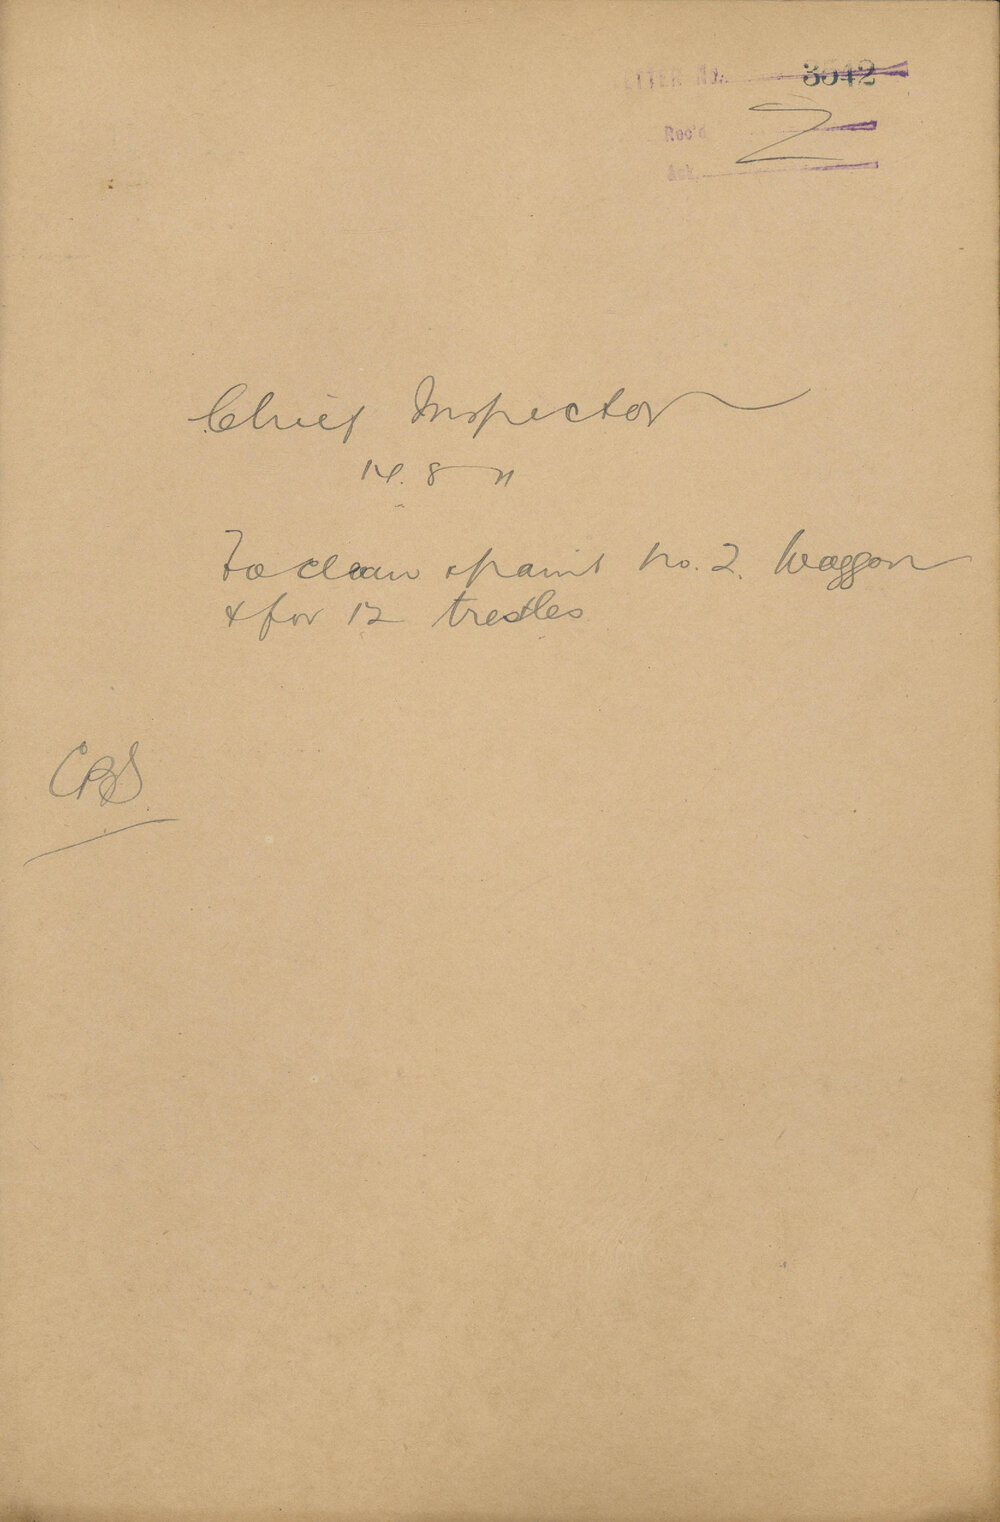 ETTER NO. 3542
Rec'd Z
Ack.
Chief Inspector
14. 8 11
To clean & paint No. 2. Waggon
& for 12 trestles